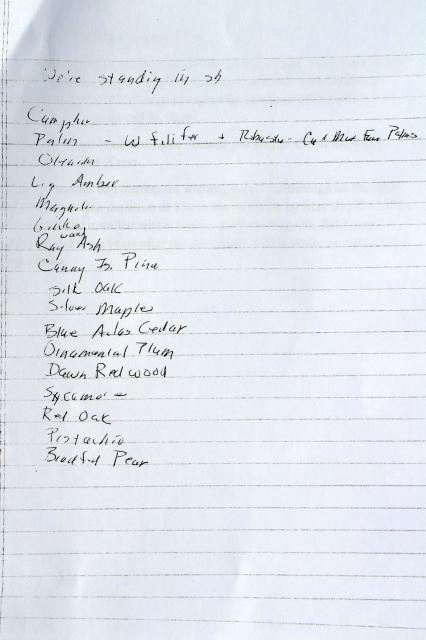 We're standing in sh
Camphor
Palm - W filifer + Robusta - Ca + Mex Fan Palms
Oleander
Liq Amber
Magnolia
Ginko
Ray wood Ash
Canary Is. Pine
Silk Oak
Silver Maple
Blue Atlas Cedar
Ornamental Plum
Dawn Redwood
Sycamore
Red Oak
Pistachio
Bradford Pear